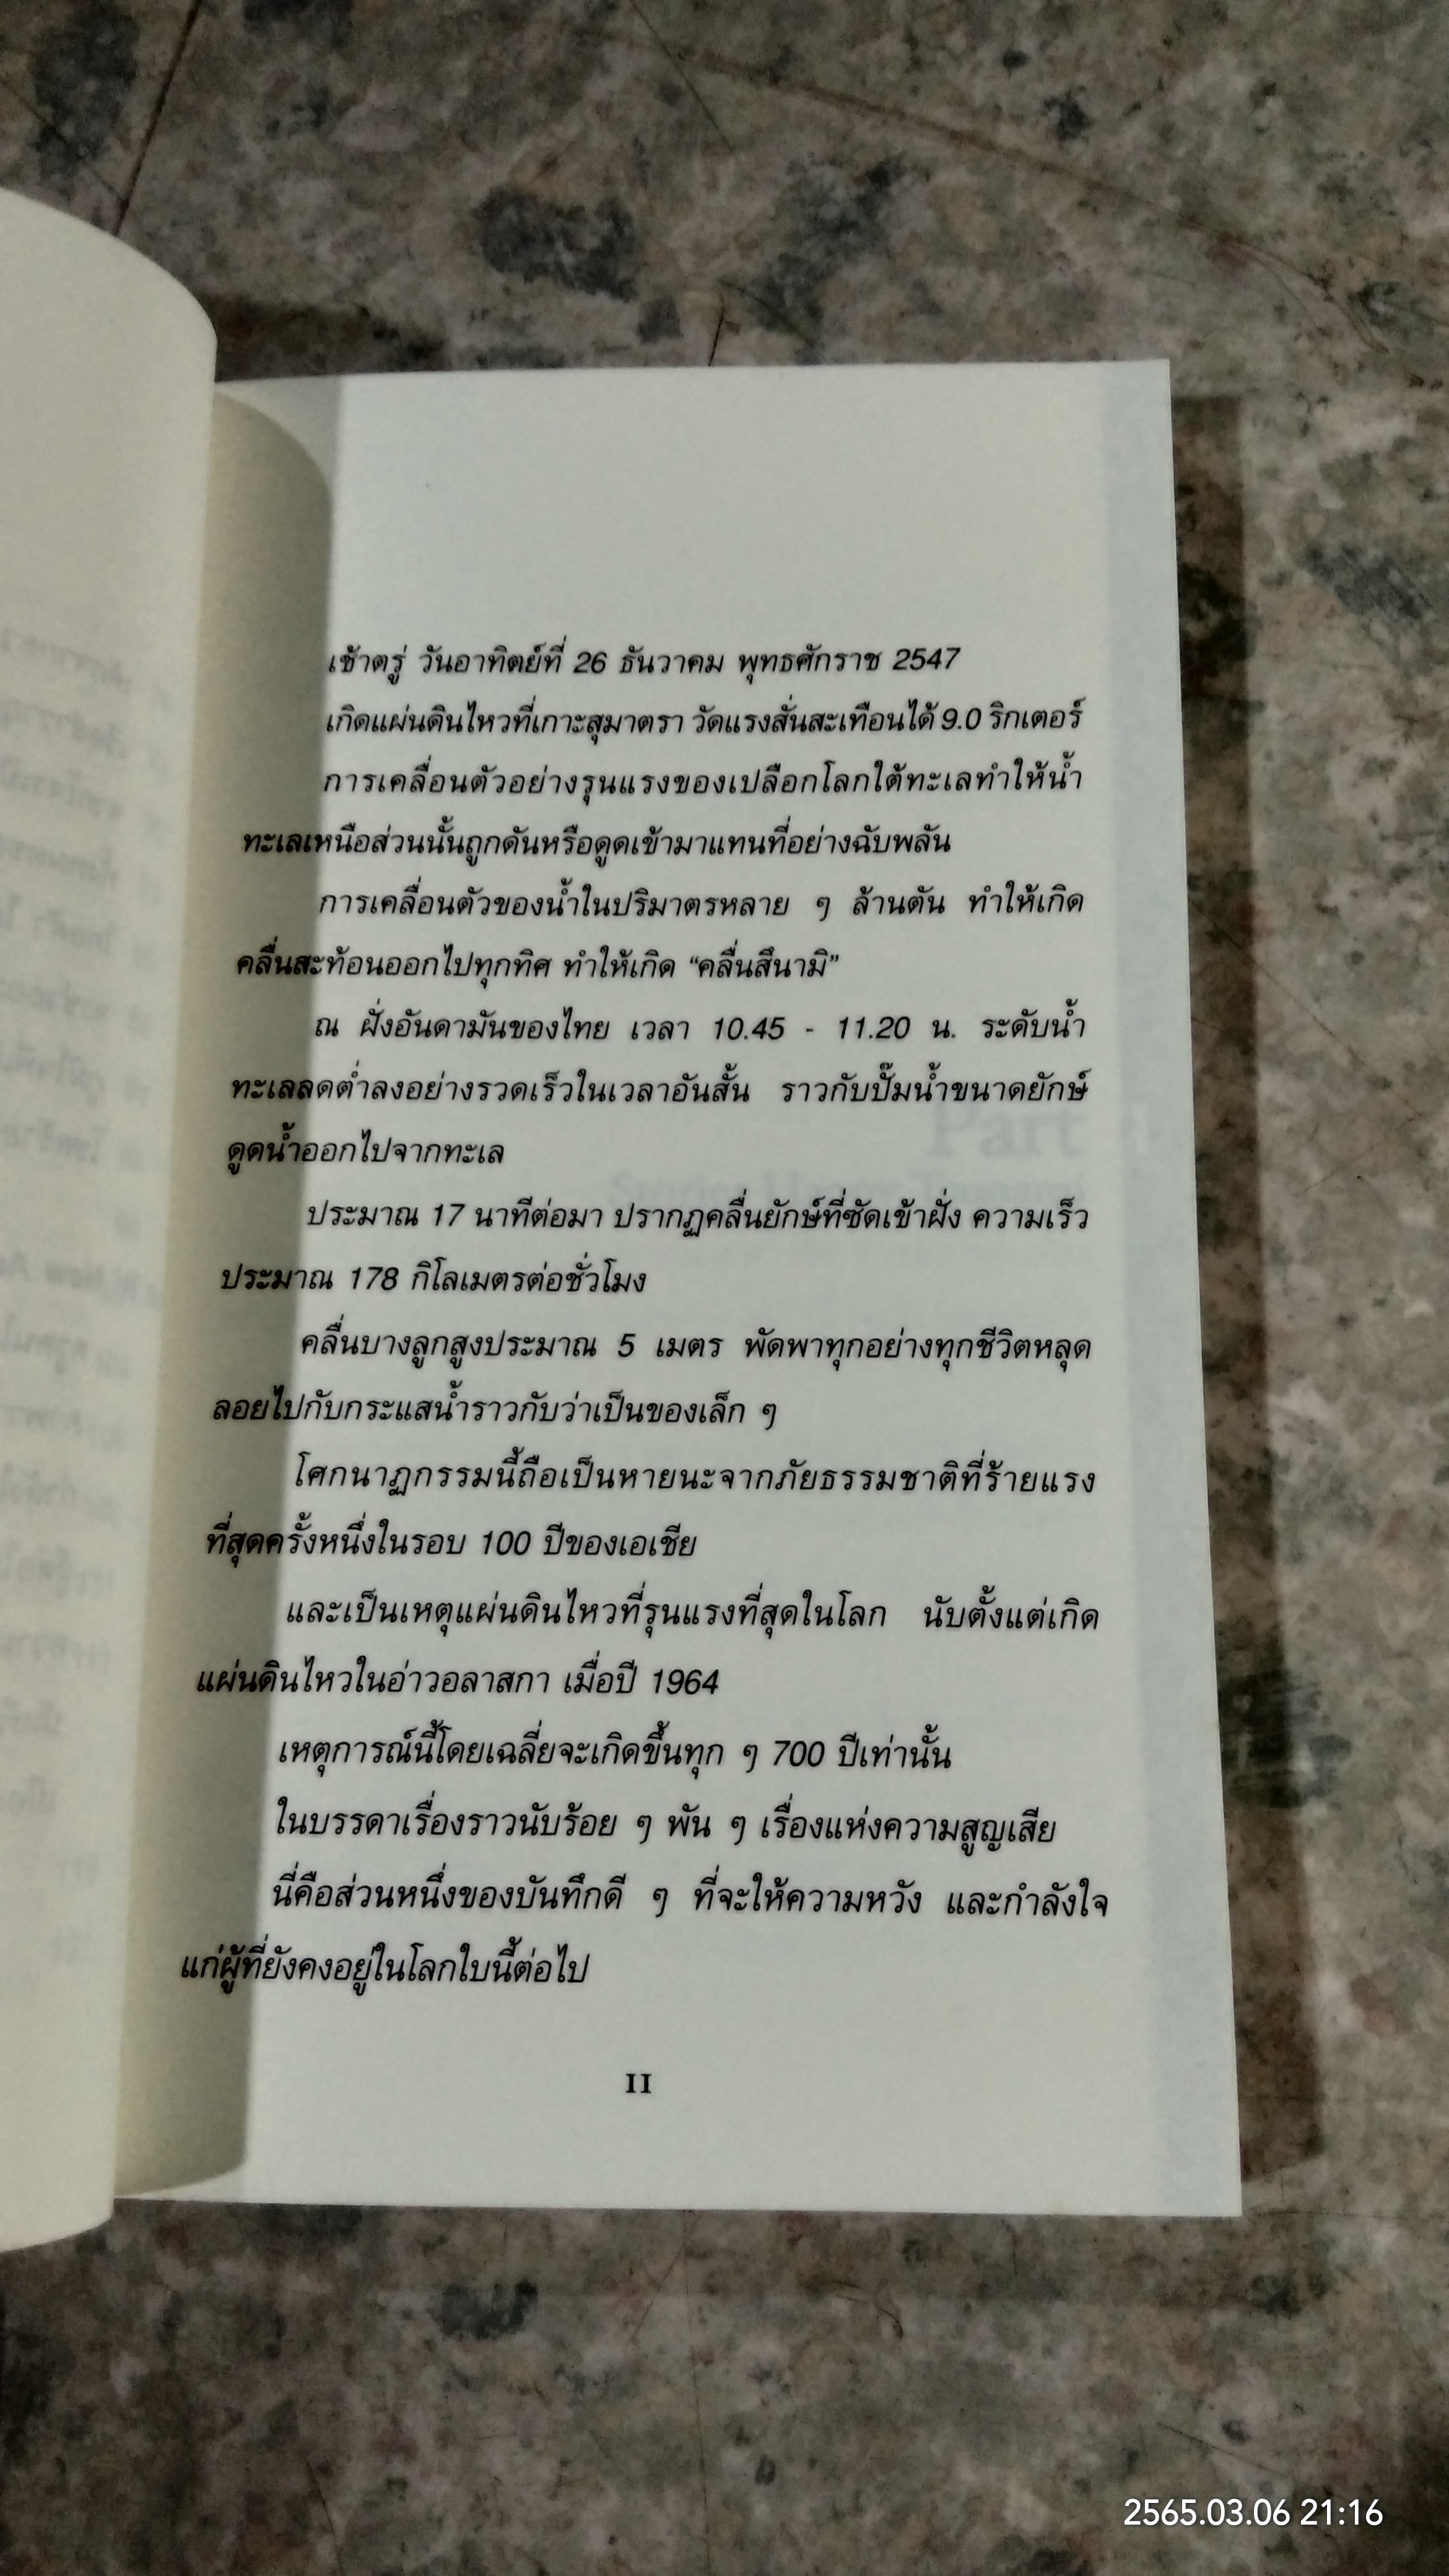 เช้าตรู่ วันอาทิตย์ที่ 26 ธันวาคม พุทธศักราช 2547
เกิดแผ่นดินไหวที่เกาะสุมาตรา วัดแรงสั่นสะเทือนได้ 9.0 ริกเตอร์
การเคลื่อนตัวอย่างรุนแรงของเปลือกโลกใต้ทะเลทำให้น้ำ
ทะเลเหนือส่วนนั้นถูกดันหรือดูดเข้ามาแทนที่อย่างฉับพลัน
การเคลื่อนตัวของน้ำในปริมาตรหลาย ๆ ล้านตัน ทำให้เกิด
คลื่นสะท้อนออกไปทุกทิศ ทำให้เกิด “คลื่นสึนามิ”
ณ ฝั่งอันดามันของไทย เวลา 10.45 - 11.20 น. ระดับน้ำ
ทะเลลดต่ำลงอย่างรวดเร็วในเวลาอันสั้น ราวกับปั๊มน้ำขนาดยักษ์
ดูดน้ำออกไปจากทะเล
ประมาณ 17 นาทีต่อมา ปรากฏคลื่นยักษ์ที่ซัดเข้าฝั่ง ความเร็ว
ประมาณ 178 กิโลเมตรต่อชั่วโมง
คลื่นบางลูกสูงประมาณ 5 เมตร พัดพาทุกอย่างทุกชีวิตหลุด
ลอยไปกับกระแสน้ำราวกับว่าเป็นของเล็ก ๆ
โศกนาฏกรรมนี้ถือเป็นหายนะจากภัยธรรมชาติที่ร้ายแรง
ที่สุดครั้งหนึ่งในรอบ 100 ปีของเอเชีย
และเป็นเหตุแผ่นดินไหวที่รุนแรงที่สุดในโลก นับตั้งแต่เกิด
แผ่นดินไหวในอ่าวอลาสกา เมื่อปี 1964
เหตุการณ์นี้โดยเฉลี่ยจะเกิดขึ้นทุก ๆ 700 ปีเท่านั้น
ในบรรดาเรื่องราวนับร้อย ๆ พัน ๆ เรื่องแห่งความสูญเสีย
นี่คือส่วนหนึ่งของบันทึกดี ๆ ที่จะให้ความหวัง และกำลังใจ
แก่ผู้ที่ยังคงอยู่ในโลกใบนี้ต่อไป
II
2565.03.06 21:16